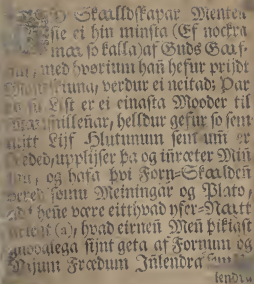 Skælldskapar Mentenn
ne ei hin minsta (Ef nockra
maa so kalla) af Guds Gaaf-
um, med hvørium hañ hefur prijdt
verdur ei neitad; Þar
List er ei einasta Mooder til
helldur gefur so sem
nitt Lijf Hlutunum sem umm er
upplijser þa og inræter Miñ
og hafa þvi Forn-Skaalden
vered sømu Meiningar og Plato,
ad i heñe være eitthvad yfer-Nattu
(a), hvad eirneñ Meñ þikiast
gnodlega siint geta af Fornum og
Nijum Frædum Iñlendra
lendra